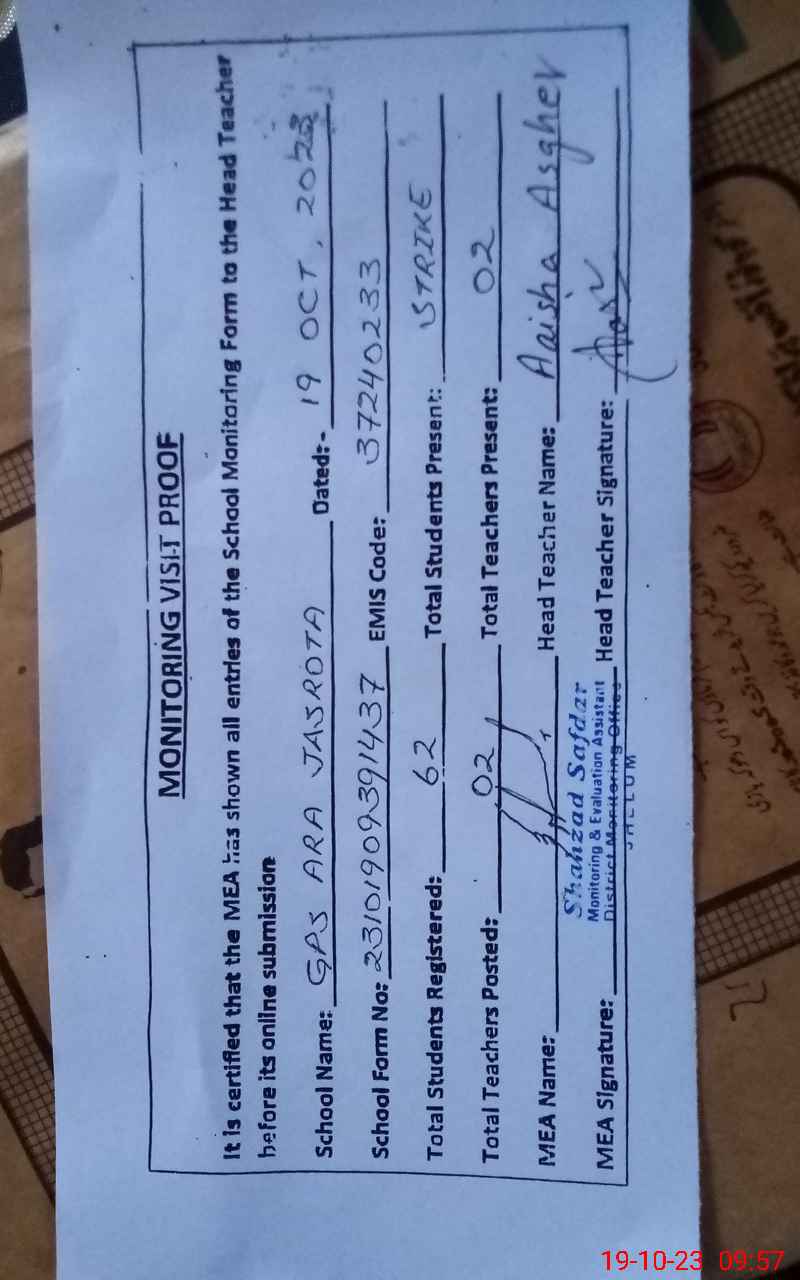 MONITORING VISIT PROOF
It is certified that the MEA has shown all entries of the School Monitoring Form to the Head Teacher
before its online submission
School Name: GPS ARA JASROTA Dated:- 19 OCT, 2023
School Form No: 23101909391437 EMIS Code: 37240233
Total Students Registered: 62 Total Students Present: STRIKE
Total Teachers Posted: 02 Total Teachers Present: 02
MEA Name: Head Teacher Name: Aaisha Asgher
Shahzad Safdar
Monitoring & Evaluation Assistant
MEA Signature: District Monitoring Office Head Teacher Signature:
JHELUM
19-10-23 09:57